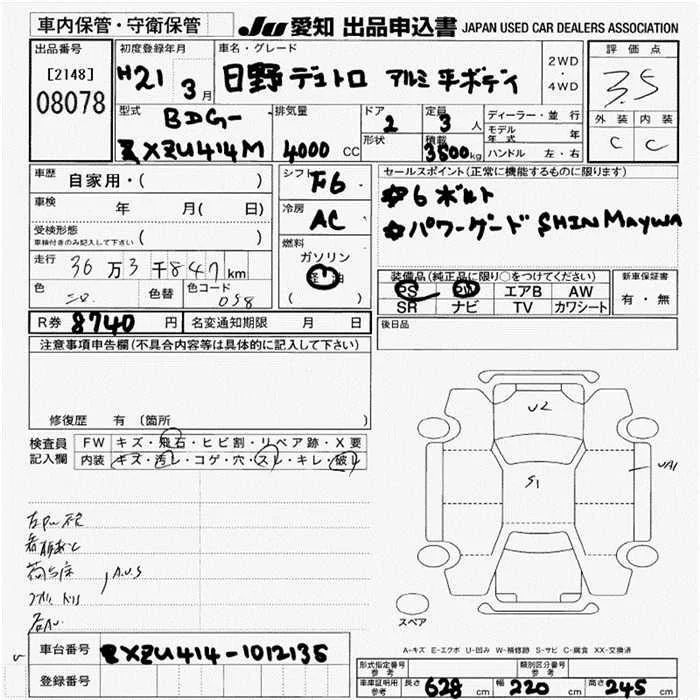 車内保管・守衛保管
JU 愛知 出品申込書 JAPAN USED CAR DEALERS ASSOCIATION
出品番号
[2148]
08078
初度登録年月
H21 3月
車名・グレード
日野 デュトロ アルミ 平ボディ
2WD
・
4WD
評価点
3.5
外装 内装
C C
型式
BDG-
XZU414M
排気量
4000 CC
ドア
2
形状
定員
3人
積載
3500kg
ディーラー・並行
モデル年式 年
ハンドル 左・右
車歴
自家用・( )
車検
年 月( 日)
受検形態
車検付きのみ記入して下さい ( )
走行
36万3千847km
色
色替
色コード
058
シフト
F6
冷房
AC
燃料
ガソリン
軽油
( )
セールスポイント(正常に機能するものに限ります)
☆6ボルト
☆パワーゲート SHINMAYWA
装備品(純正品に限り○をつけてください)
PS PW エアB AW
SR ナビ TV カワシート
新車保証書
有・無
R券 8740円
名変通知期限 月 日
後日品
注意事項申告欄(不具合内容等は具体的に記入して下さい)
修復歴 有(箇所 )
検査員
記入欄
FW キズ・飛石・ヒビ割・リペア跡・X要
内装 キズ・汚レ・コゲ・穴・スレ・キレ・破レ
荷台床
A.U.S
U2
S1
UA1
スペア
A-キズ E-エクボ U-凹み W-補修跡 S-サビ C-腐食 XX-交換済
車台番号 XZU414-1012135
登録番号
型式指定番号
参考
類別区分番号
参考
車庫証明用
参考
長さ 628cm 幅 220cm 高さ 245cm